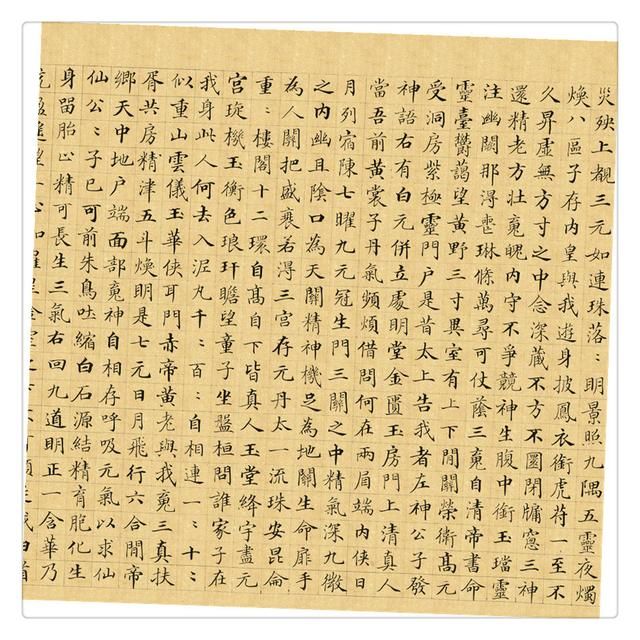 災殃上覩三元如連珠落〻明景照九隅五靈夜燭
煥八區子存內皇與我遊身披鳳衣銜虎苻一至不
久昇虛無方寸之中念深藏不方不圓閉牖窻三神
還精老方壯䰟魄內守不爭競神生腹中銜玉璫靈
注幽闕那得喪琳條萬尋可仗蔭三䰟自清帝書命
靈臺鬱藹望黃野三寸異室有上下閒關榮衛髙元
受洞房紫極靈門户是昔太上告我者左神公子發
神語右有白元併立處明堂金匱玉房門上清真人
當吾前黃裳子丹氣頻煩借問何在兩眉端內俠日
月列宿陳七曜九元冠生門三關之中精氣深九微
之內幽且陰口為天關精神機足為地關生命扉手
為人關把盛衰若得三宮存元丹太一流珠安昆侖
重〻樓閣十二環自髙自下皆真人玉堂絳宇盡元
宮琁機玉衡色琅玕瞻望童子坐盤桓問誰家子在
我身此人何去入泥丸千〻百〻自相連一〻十〻
似重山雲儀玉華俠耳門赤帝黃老與我䰟三真扶
胥共房精津五斗煥明是七元日月飛行六合間帝
鄉天中地户端面部䰟神自相存呼吸元氣以求仙
仙公〻子已可前朱鳥吐縮白石源結精育胞化生
身留胎止精可長生三氣右回九道明正一含華乃